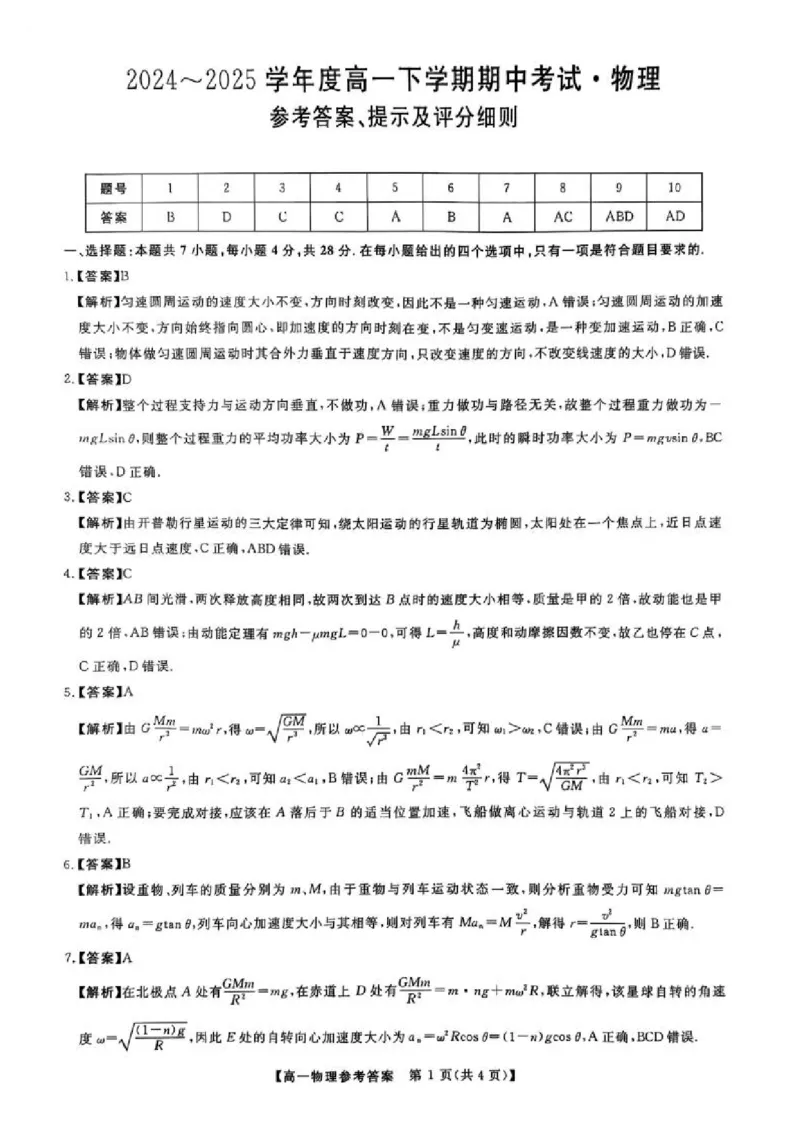 2024～2025学年度高一下学期期中考试·物理
参考答案、提示及评分细则
题号 1 2 3 4 5 6 7 8 9 10
答案 B D C C A B A AC ABD AD
一、选择题:本题共7小题,每小题4分,共28分.在每小题给出的四个选项中,只有一项是符合题目要求的.
1.【答案】B
【解析】匀速圆周运动的速度大小不变,方向时刻改变,因此不是一种匀速运动,A错误;匀速圆周运动的加速
度大小不变、方向始终指向圆心、即加速度的方向时刻在变,不是匀变速运动,是一种变加速运动,B正确,C
错误;物体做匀速圆周运动时其合外力垂直于速度方向,只改变速度的方向,不改变线速度的大小,D错误.
2.【答案】D
【解析】整个过程支持力与运动方向垂直,不做功,A错误;重力做功与路径无关,故整个过程重力做功为－
mgLsin θ,则整个过程重力的平均功率大小为 P=W/t=mgLsin θ/t,此时的瞬时功率大小为 P=mgvsin θ,BC
错误、D正确.
3.【答案】C
【解析】由开普勒行星运动的三大定律可知,绕太阳运动的行星轨道为椭圆,太阳处在一个焦点上,近日点速
度大于远日点速度,C正确,ABD错误.
4.【答案】C
【解析】AB间光滑,两次释放高度相同,故两次到达B点时的速度大小相等,质量是甲的2倍,故动能也是甲
的2倍,AB错误;由动能定理有 mgh－μmgL=0－0,可得 L=h/μ,高度和动摩擦因数不变,故乙也停在C点,
C正确,D错误.
5.【答案】A
【解析】由 G Mm/r²=mω²r,得 ω=√(GM/r³),所以 ω∝1/√r³,由 r₁<r₂,可知 ω₁>ω₂,C错误;由 G Mm/r²=ma,得 a=
GM/r²,所以 a∝1/r²,由 r₁<r₂,可知 a₂<a₁,B错误;由 G mM/r²=m 4π²/T² r,得 T=√(4π²r³/GM),由 r₁<r₂,可知 T₂>
T₁,A正确;要完成对接,应该在A落后于B的适当位置加速,飞船做离心运动与轨道2上的飞船对接,D
错误.
6.【答案】B
【解析】设重物、列车的质量分别为 m、M,由于重物与列车运动状态一致,则分析重物受力可知 mgtan θ=
maₙ,得 aₙ=gtan θ,列车向心加速度大小与其相等,则对列车有 Maₙ=M v²/r,解得 r=v²/gtan θ,则B正确.
7.【答案】A
【解析】在北极点A处有 GMm/R²=mg,在赤道上D处有 GMm/R²=m·ng+mω²R,联立解得,该星球自转的角速
度 ω=√((1－n)g/R),因此E处的自转向心加速度大小为 aₙ=ω²Rcos θ=(1－n)gcos θ,A正确,BCD错误.
【高一物理参考答案 第1页(共4页)】